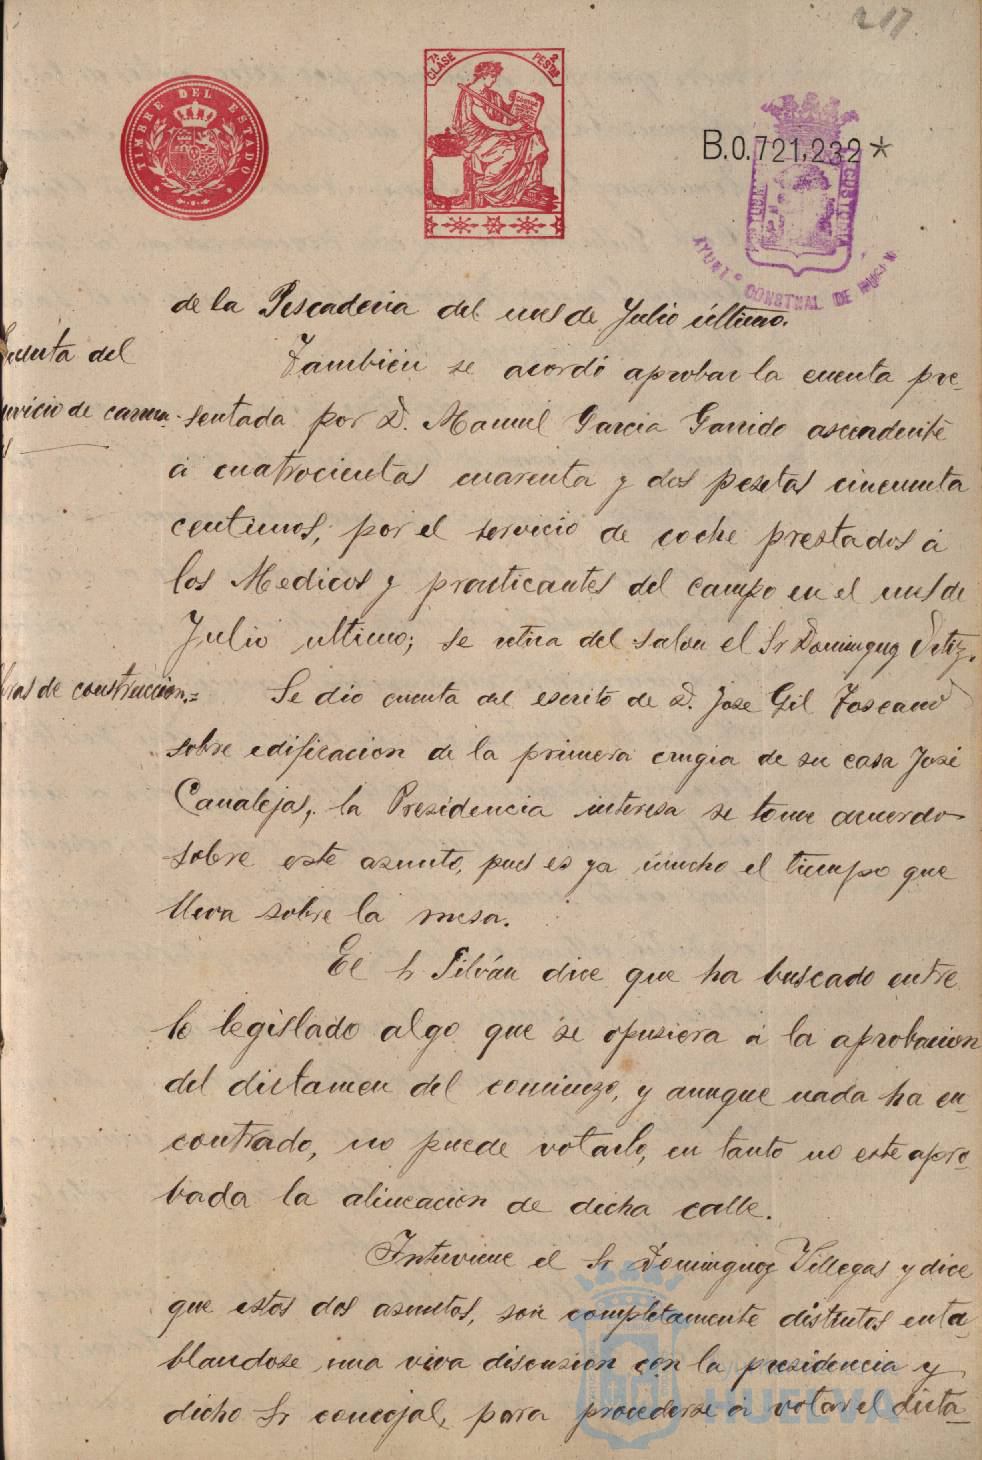 217
TIMBRE DEL ESTADO
7ª CLASE 2 PESTAS
B.0.721,232*
AYUNTº CONSTNAL DE
de la Pescaderia del mes de Julio último.
Cuenta del
servicio de carrua-
También se acordó aprobar la cuenta pre-
sentada por D. Manuel Garcia Garrido ascendente
á cuatrocientas cuarenta y dos pesetas cincuenta
centimos, por el servicio de coche prestados á
los Medicos y practicantes del campo en el mes de
Julio ultimo; se retira del salon el Sr Dominguez Ortiz.
Obras de construccion.=
Se dio cuenta del escrito de D. Jose Gil Toscano
sobre edificacion de la primera crugia de su casa José
Canalejas, la Presidencia interesa se tome acuerdo
sobre este asunto, pues es ya mucho el tiempo que
lleva sobre la mesa.
El Sr Pilván dice que ha buscado entre
lo legislado algo que se opusiera á la aprobacion
del dictamen del comienzo, y aunque nada ha en-
contrado, no puede votarlo, en tanto no esté apro-
bada la alineación de dicha calle.
Interviene el Sr Dominguez Villegas y dice
que estos dos asuntos, son completamente distintos enta-
blandose una viva discusion con la presidencia y
dicho Sr concejal, para procederse á votar el dicta-
HUELVA